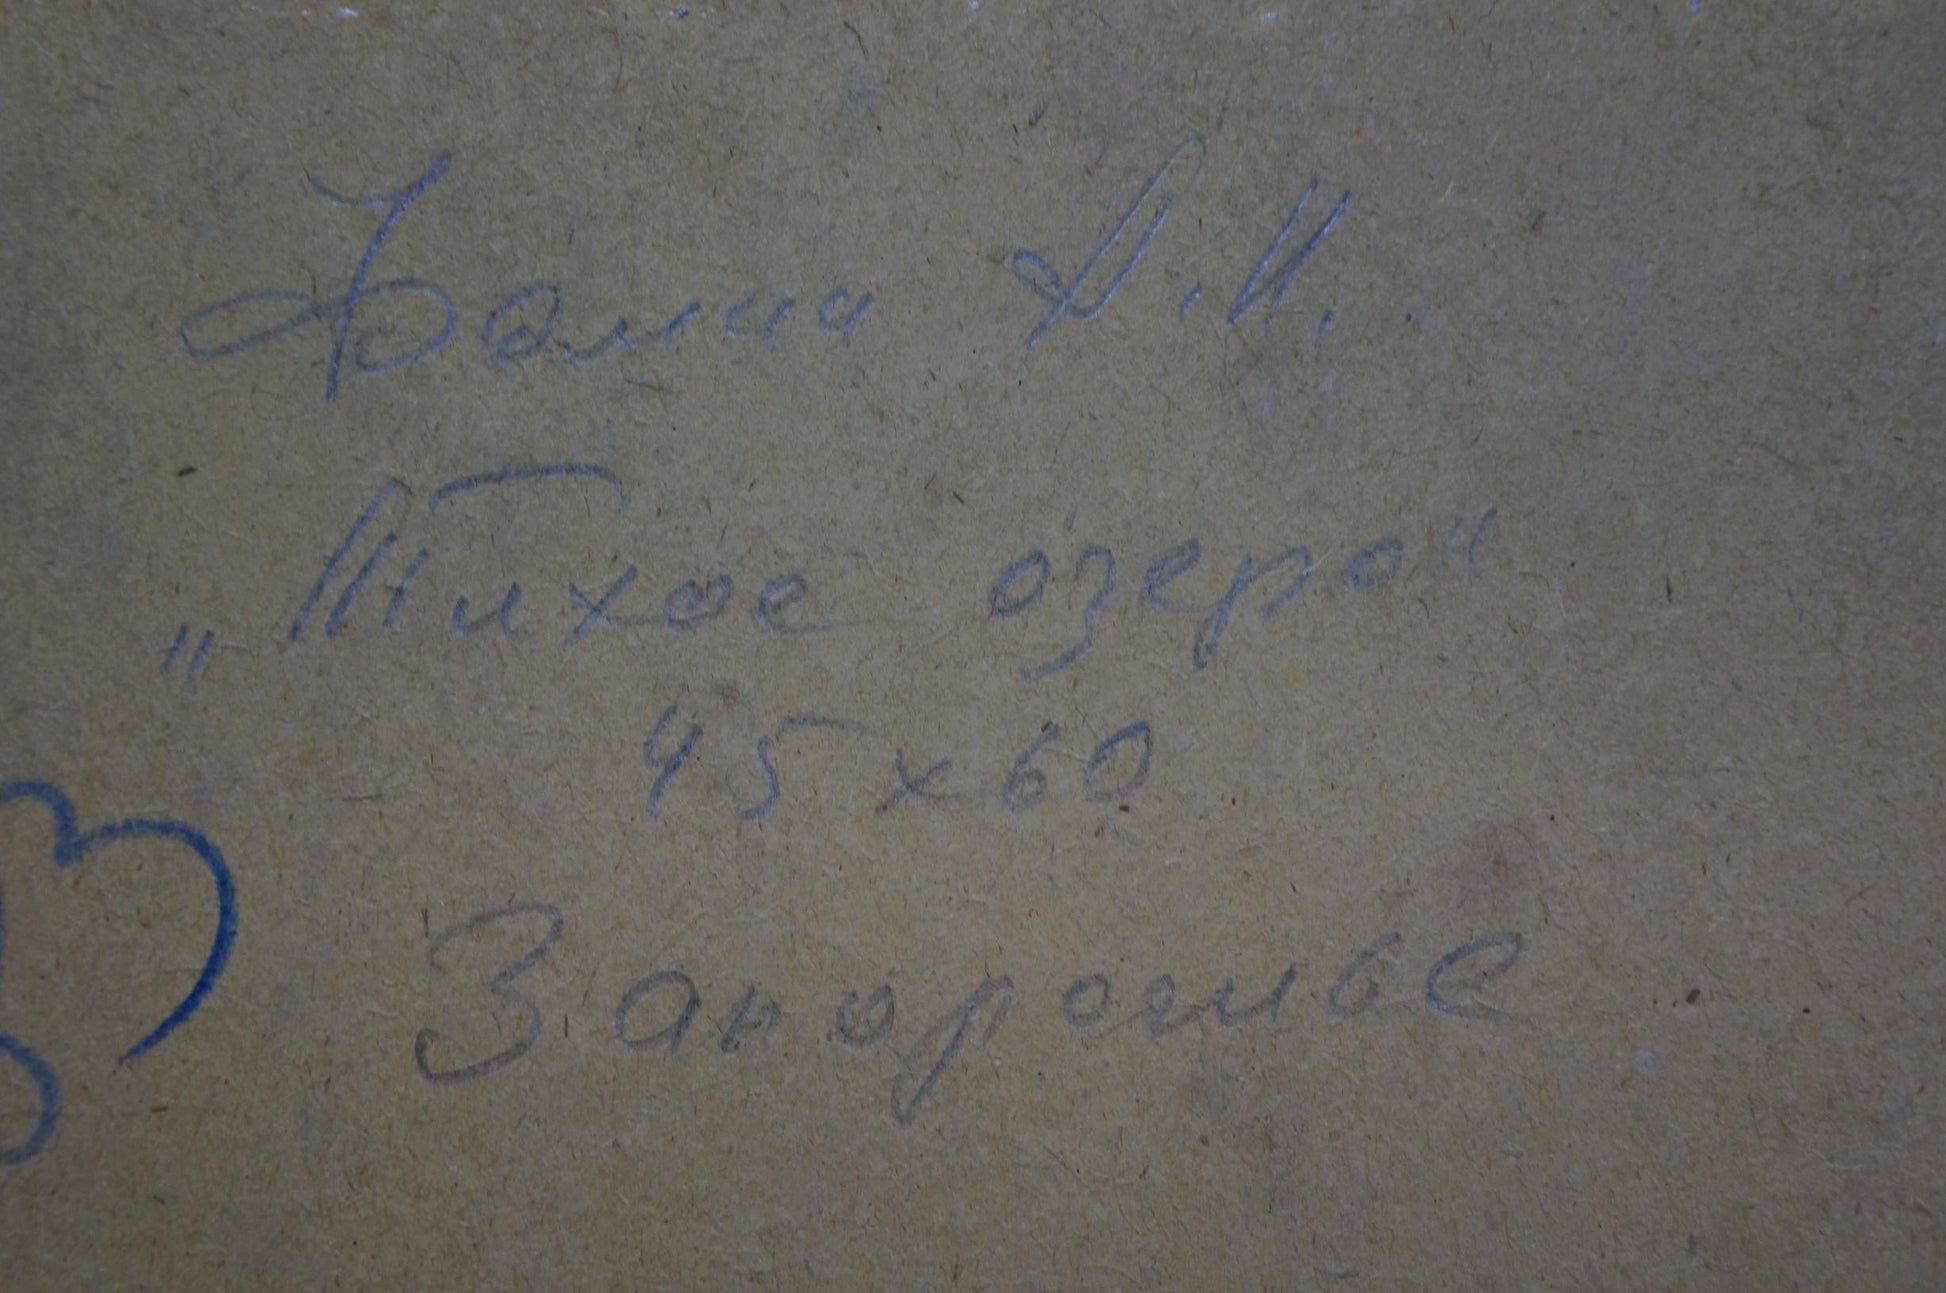 Фомин А.И.
„Тихое озеро“
45х60
Запорожье